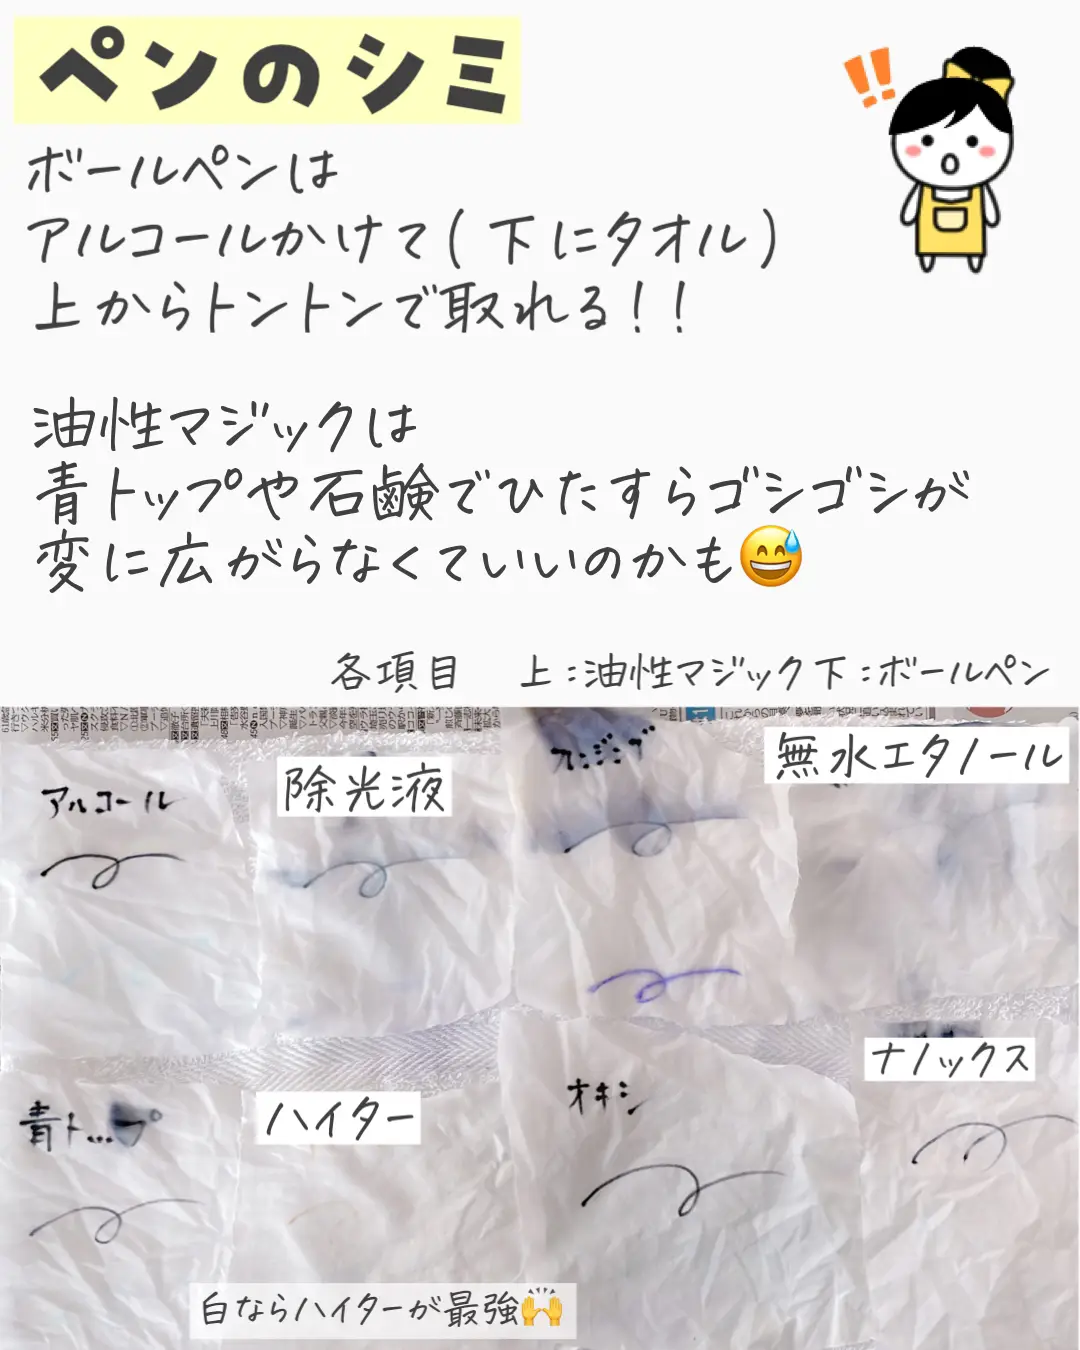 ペンのシミ
ボールペンは
アルコールかけて(下にタオル)
上からトントンで取れる!!
油性マジックは
青トップや石鹸でひたすらゴシゴシが
変に広がらなくていいのかも😅
各項目 上:油性マジック下:ボールペン
アルコール
除光液
クレンジング
無水エタノール
青トップ
ハイター
オキシ
ナノックス
白ならハイターが最強🙌